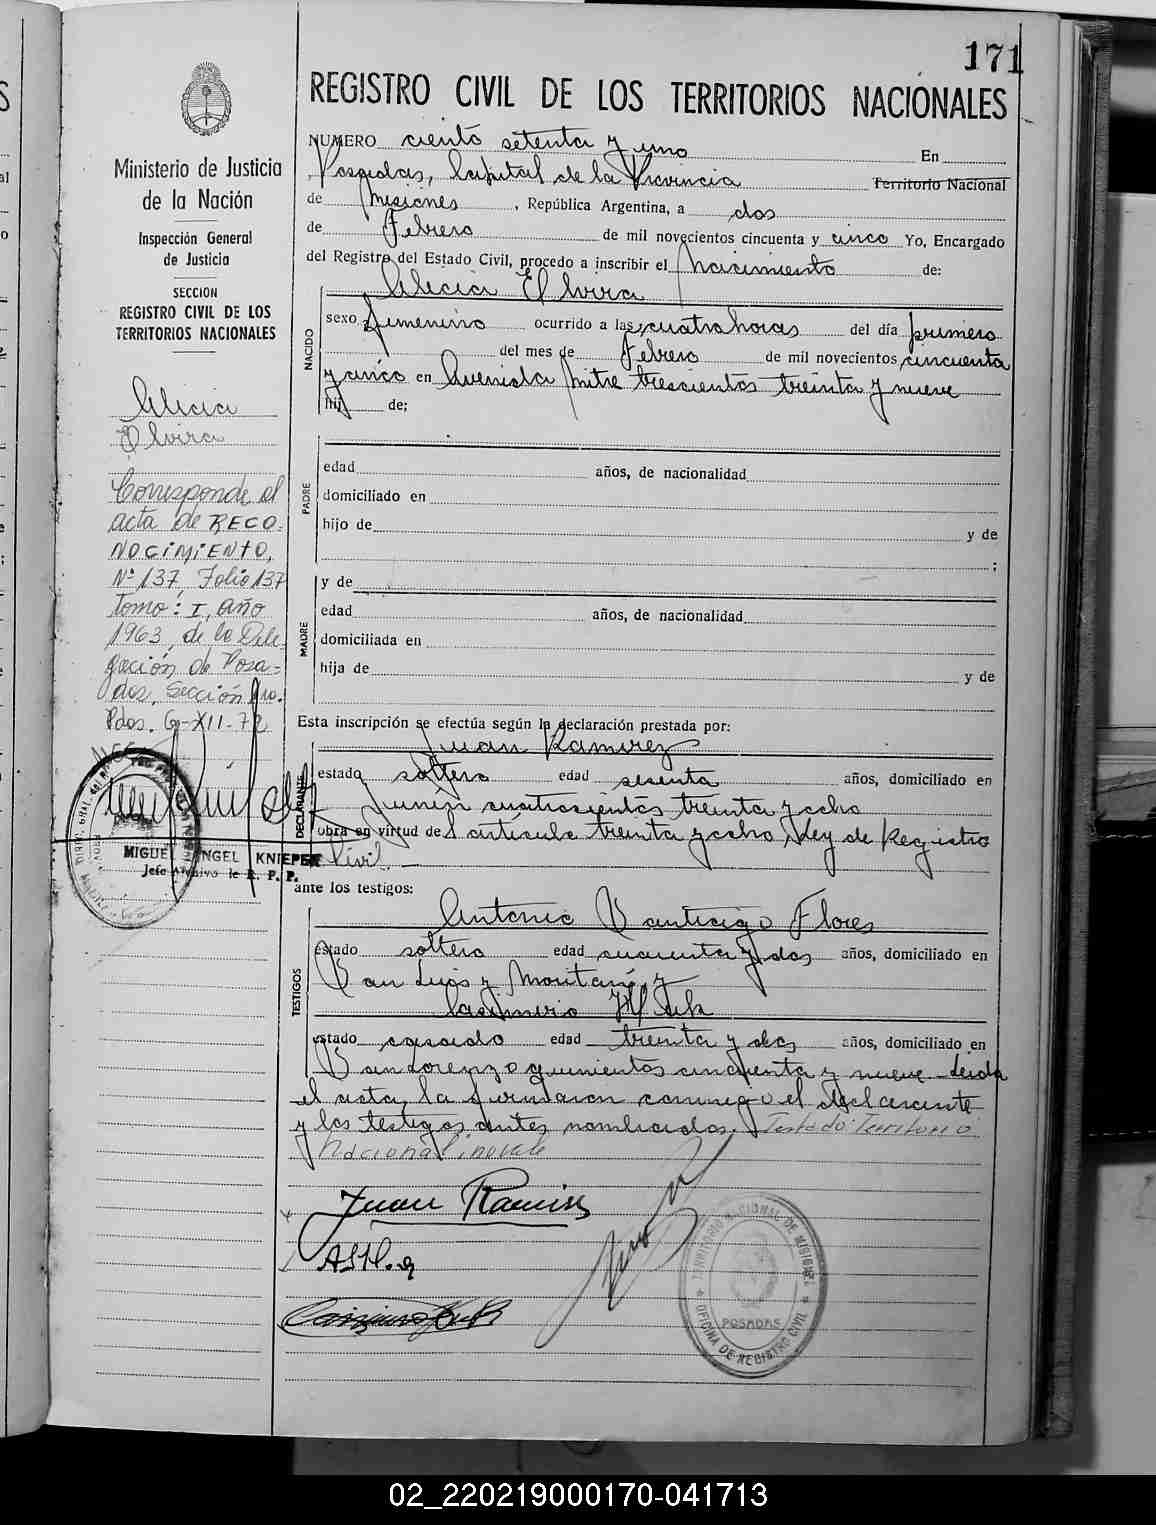 171
REGISTRO CIVIL DE LOS TERRITORIOS NACIONALES
Ministerio de Justicia
de la Nación
Inspección General
de Justicia
SECCION
REGISTRO CIVIL DE LOS
TERRITORIOS NACIONALES
Alicia
Elvira
Corresponde al
acta de RECO-
NOCIMIENTO,
Nº 137, Folio 137
tomo: I, año
1963, de la Dele-
gación de Posa-
das, Sección
Pdas. 6-XII-72
MIGUEL ANGEL KNIEPER
Jefe Archivo de R. P. P.
NUMERO ciento setenta y uno En
Posadas, Capital de la Provincia Territorio Nacional
de Misiones, República Argentina, a dos
de Febrero de mil novecientos cincuenta y cinco Yo, Encargado
del Registro del Estado Civil, procedo a inscribir el Nacimiento de:
NACIDO
Alicia Elvira
sexo femenino ocurrido a las cuatro horas del día primero
del mes de Febrero de mil novecientos cincuenta
y cinco en Avenida Mitre trescientos treinta y nueve
hij de;
PADRE
edad años, de nacionalidad
domiciliado en
hijo de y de
;
MADRE
y de
edad años, de nacionalidad
domiciliada en
hija de y de
Esta inscripción se efectúa según la declaración prestada por:
DECLARANTE
Juan Ramirez
estado soltero edad sesenta años, domiciliado en
Junín cuatrocientos treinta y ocho
obra en virtud del artículo treinta y ocho, Ley de Registro
Civil.
ante los testigos:
TESTIGOS
Antonio Santiago Flores
estado soltero edad cuarenta y dos años, domiciliado en
San Luis y
Casimiro
estado casado edad treinta y dos años, domiciliado en
San Lorenzo quinientos cincuenta y nueve. Leida
el acta, la firmaron conmigo el declarante
y los testigos antes nombrados. Testado: Territorio
Nacional: no vale
Juan Ramirez
TERRITORIO NACIONAL DE MISIONES
POSADAS
OFICINA DE REGISTRO CIVIL
02_220219000170-041713